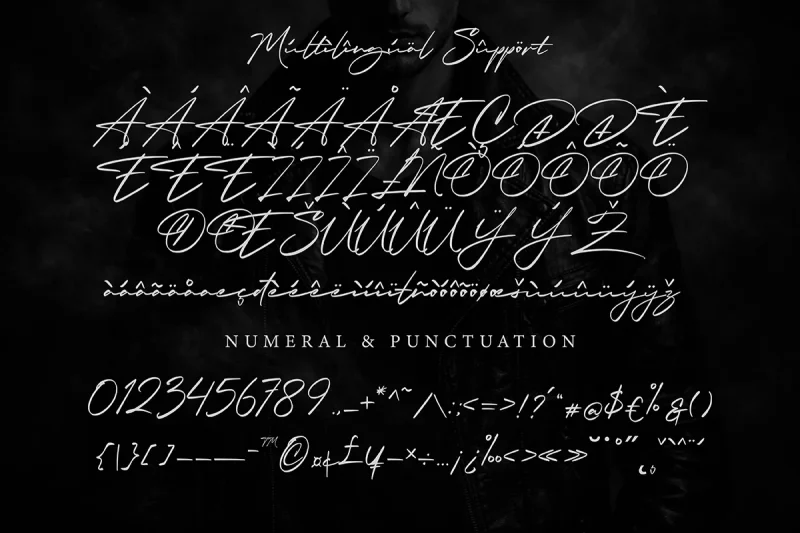 Múltilingúäl Sûppört
À Á Â Ã Ä Å Æ Ç Ð Đ È
É Ê Ë Ì Í Î Ï Ł Ñ Ò Ó Ô Õ Ö
Ø Œ Š Ù Ú Û Ü Ÿ Ý Ž
àáâãäåæçđèéêëìíîïłñòóôõöøœšùúûüýÿž
NUMERAL & PUNCTUATION
0123456789.,_+*^~/\:;<=>!?'"#@$€%&()
{|}[]———-™©¤¢£¥−×÷…¡¿‰<>«»